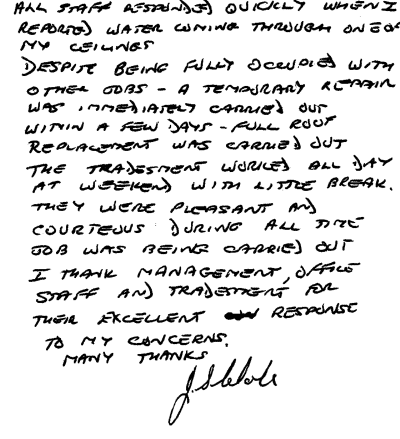 ALL STAFF RESPONDED QUICKLY WHEN I
REPORTED WATER COMING THROUGH ONE OF
MY CEILINGS
DESPITE BEING FULLY OCCUPIED WITH
OTHER JOBS - A TEMPORARY REPAIR
WAS IMMEDIATELY CARRIED OUT
WITHIN A FEW DAYS - FULL ROOF
REPLACEMENT WAS CARRIED OUT
THE TRADESMENT WORKED ALL DAY
AT WEEKEND WITH LITTLE BREAK.
THEY WERE PLEASANT AND
COURTEOUS DURING ALL TIME
JOB WAS BEING CARRIED OUT
I THANK MANAGEMENT, OFFICE
STAFF AND TRADESMENT FOR
THEIR EXCELLENT RESPONSE
TO MY CONCERNS.
MANY THANKS